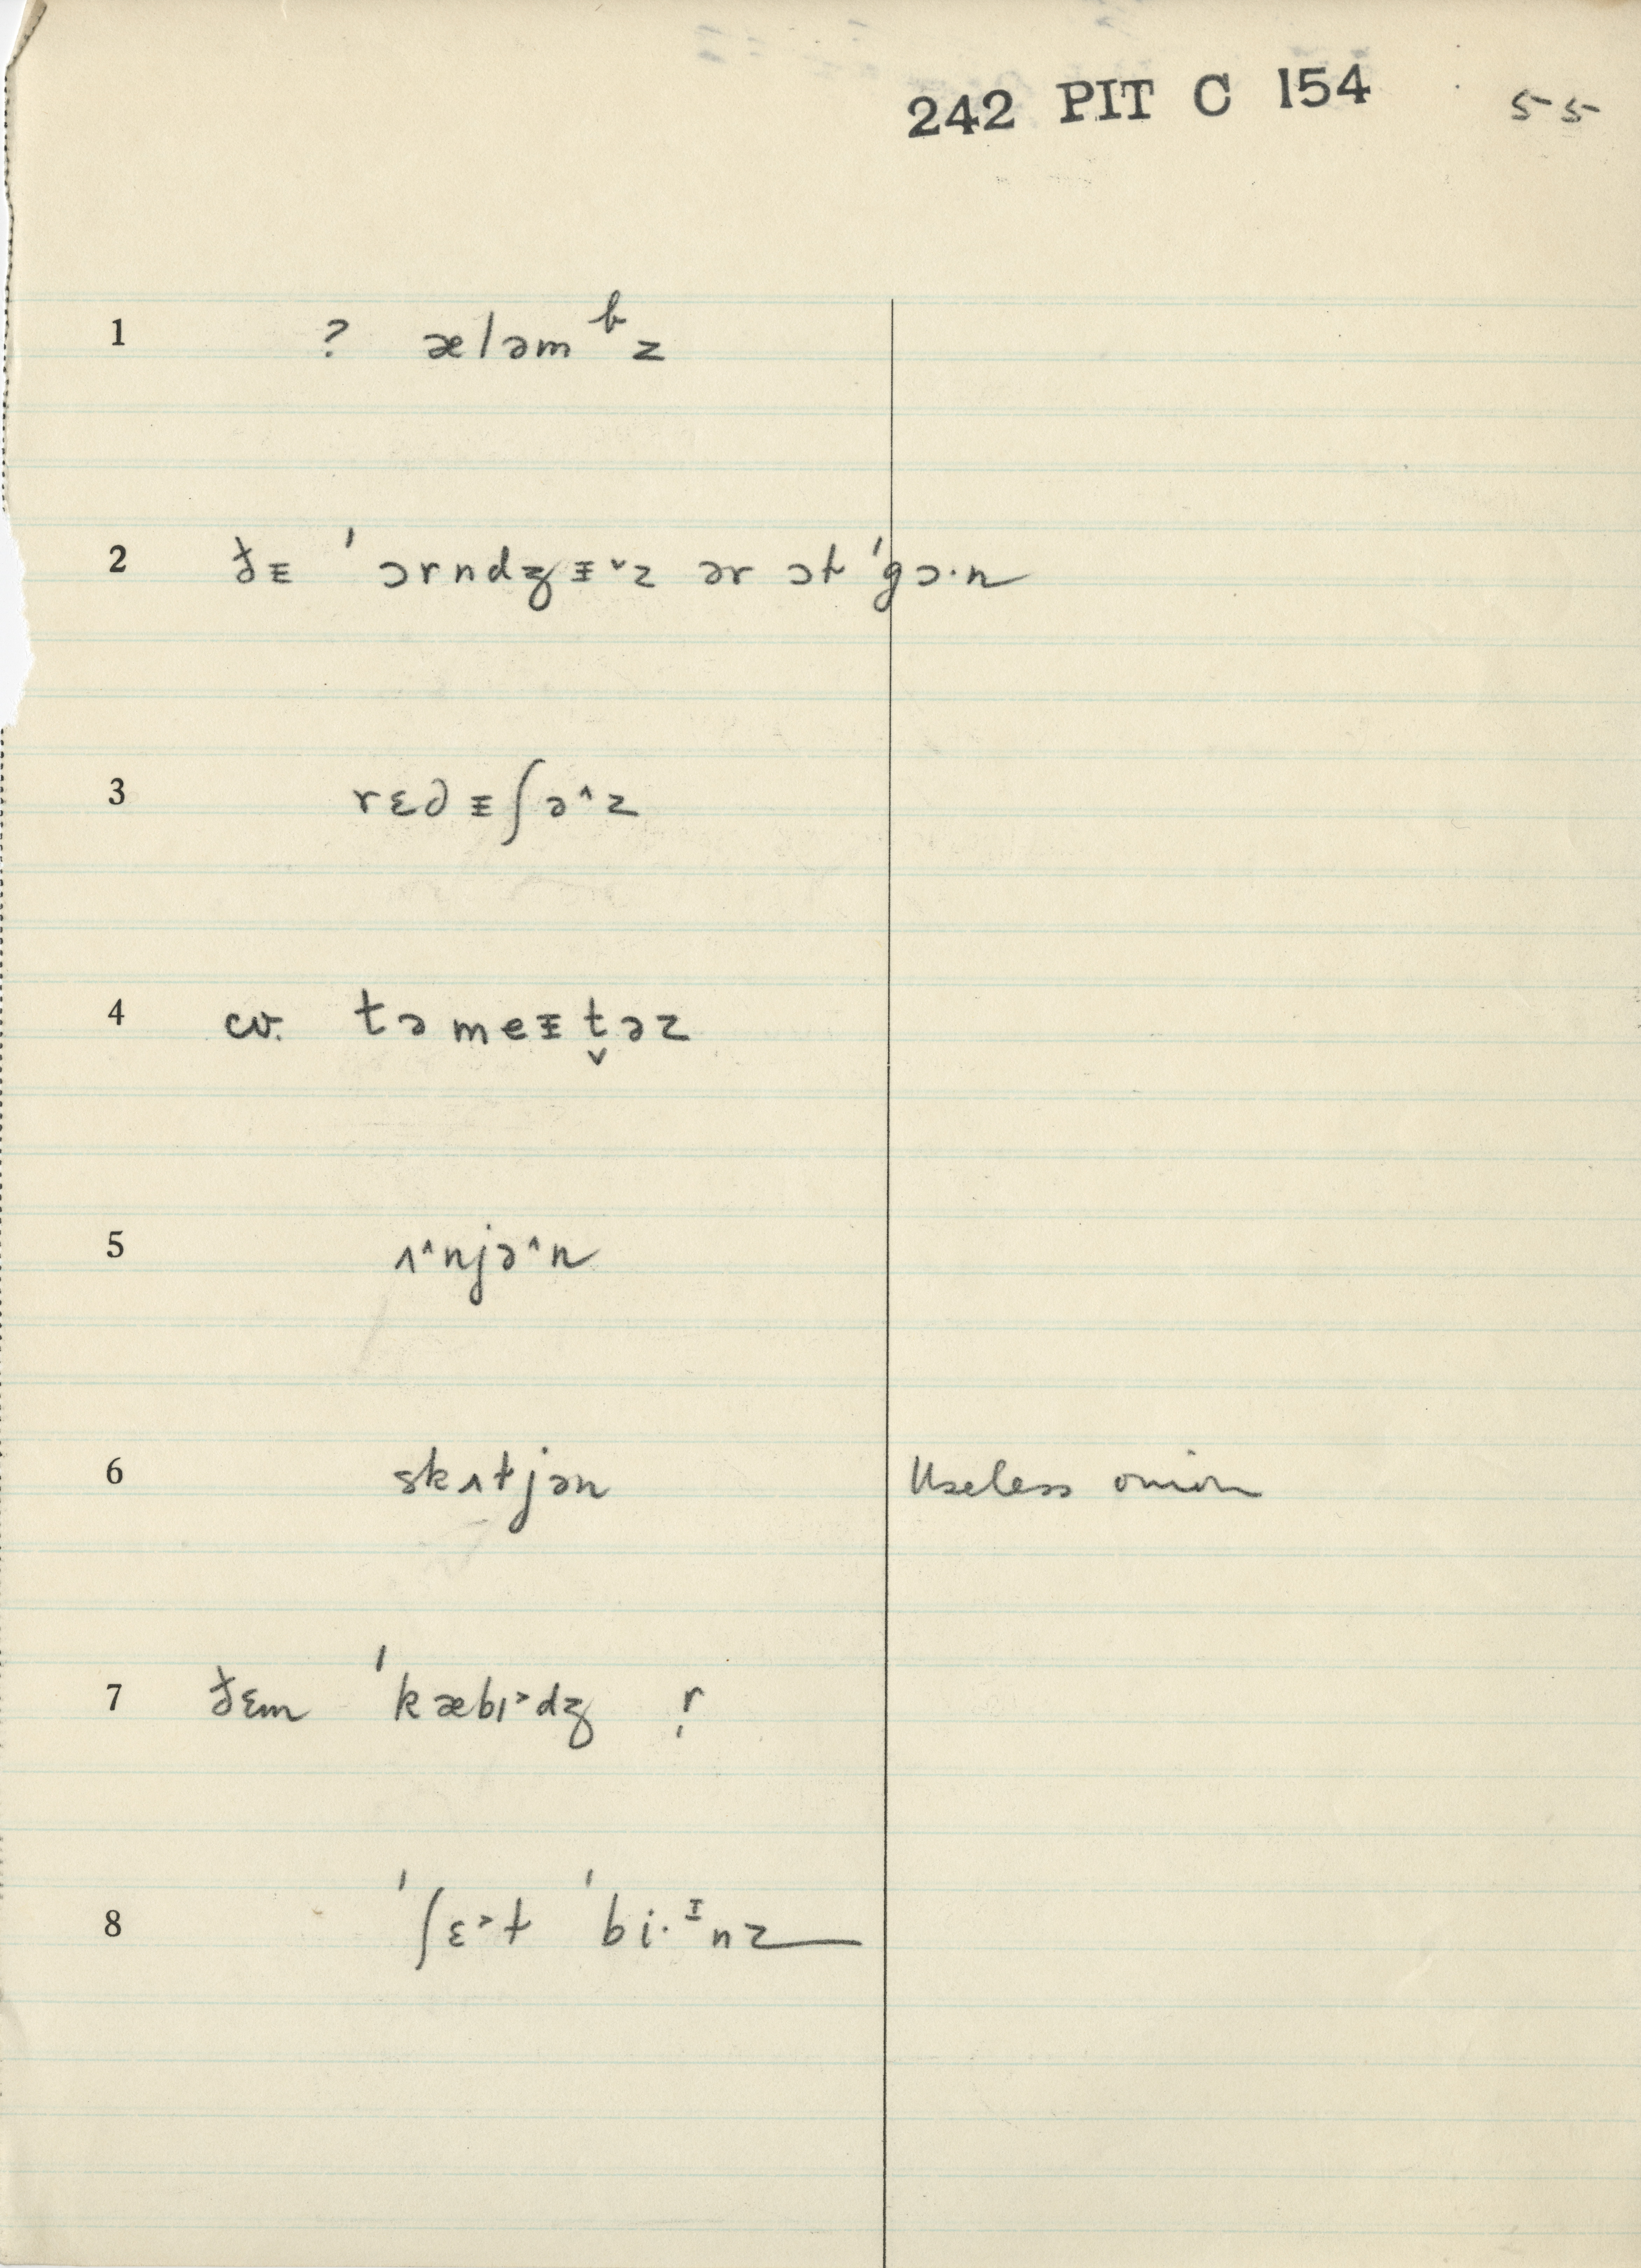 242 PIT C 154 55
1 ? æləmᵇz
2 ðᵻ ˈɔrndʒᵻ˅z ər ɔt ˈgɔ·n
3 rɛdᵻʃə˄z
4 cv. təmeᵻt̬əz
5 ʌ˄njə˄n
6 skʌtjən Useless onion
7 ðɛm ˈkæbɪ˃dʒ r̩
8 ˈʃɛ˃t ˈbi·ᶦnz